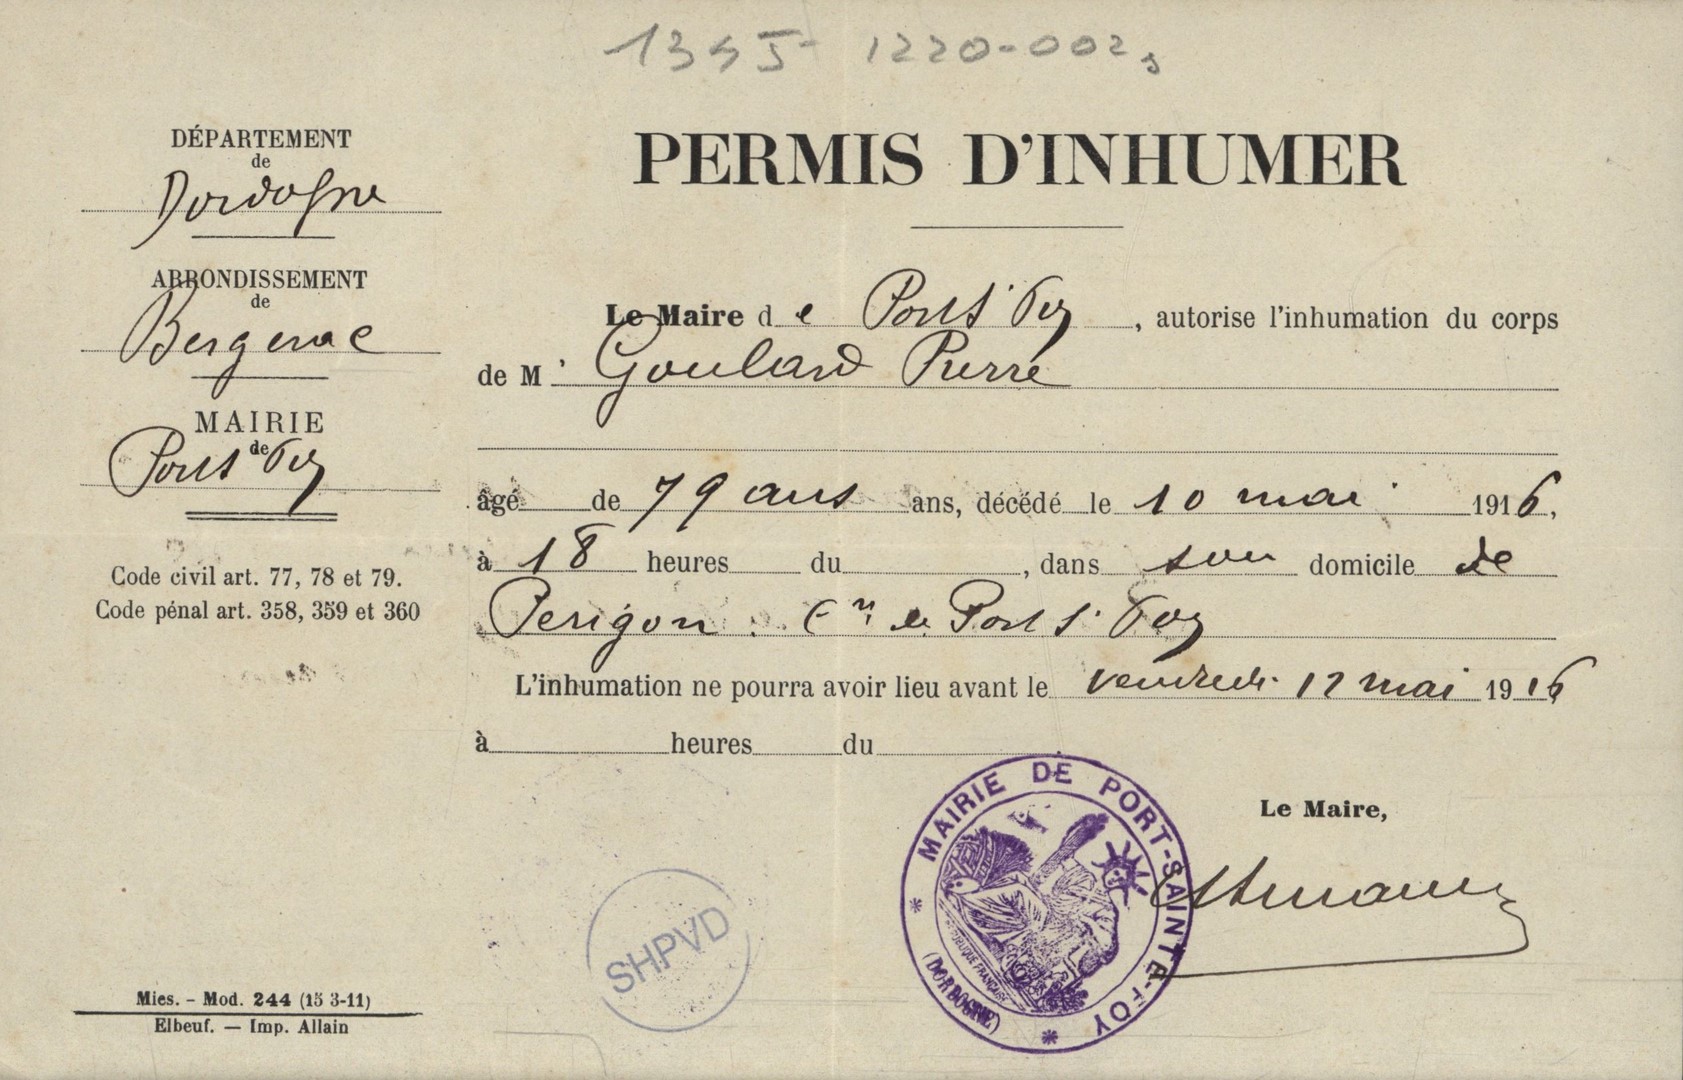 1220-002
DÉPARTEMENT
de
Dordogne
ARRONDISSEMENT
de
Bergerac
MAIRIE
de
Port Ste Foy
Code civil art. 77, 78 et 79.
Code pénal art. 358, 359 et 360
Mies. - Mod. 244 (15 3-11)
Elbeuf. — Imp. Allain
PERMIS D'INHUMER
Le Maire de Port Ste Foy, autorise l'inhumation du corps
de Mr Goulard Pierre
âgé de 79 ans ans, décédé le 10 mai 1916,
à 18 heures du , dans son domicile de
Perigon. Cne de Port Ste Foy
L'inhumation ne pourra avoir lieu avant le vendredi 12 mai 1916
à heures du
Le Maire,
MAIRIE DE PORT-SAINTE-FOY
(DORDOGNE)
SHPVD